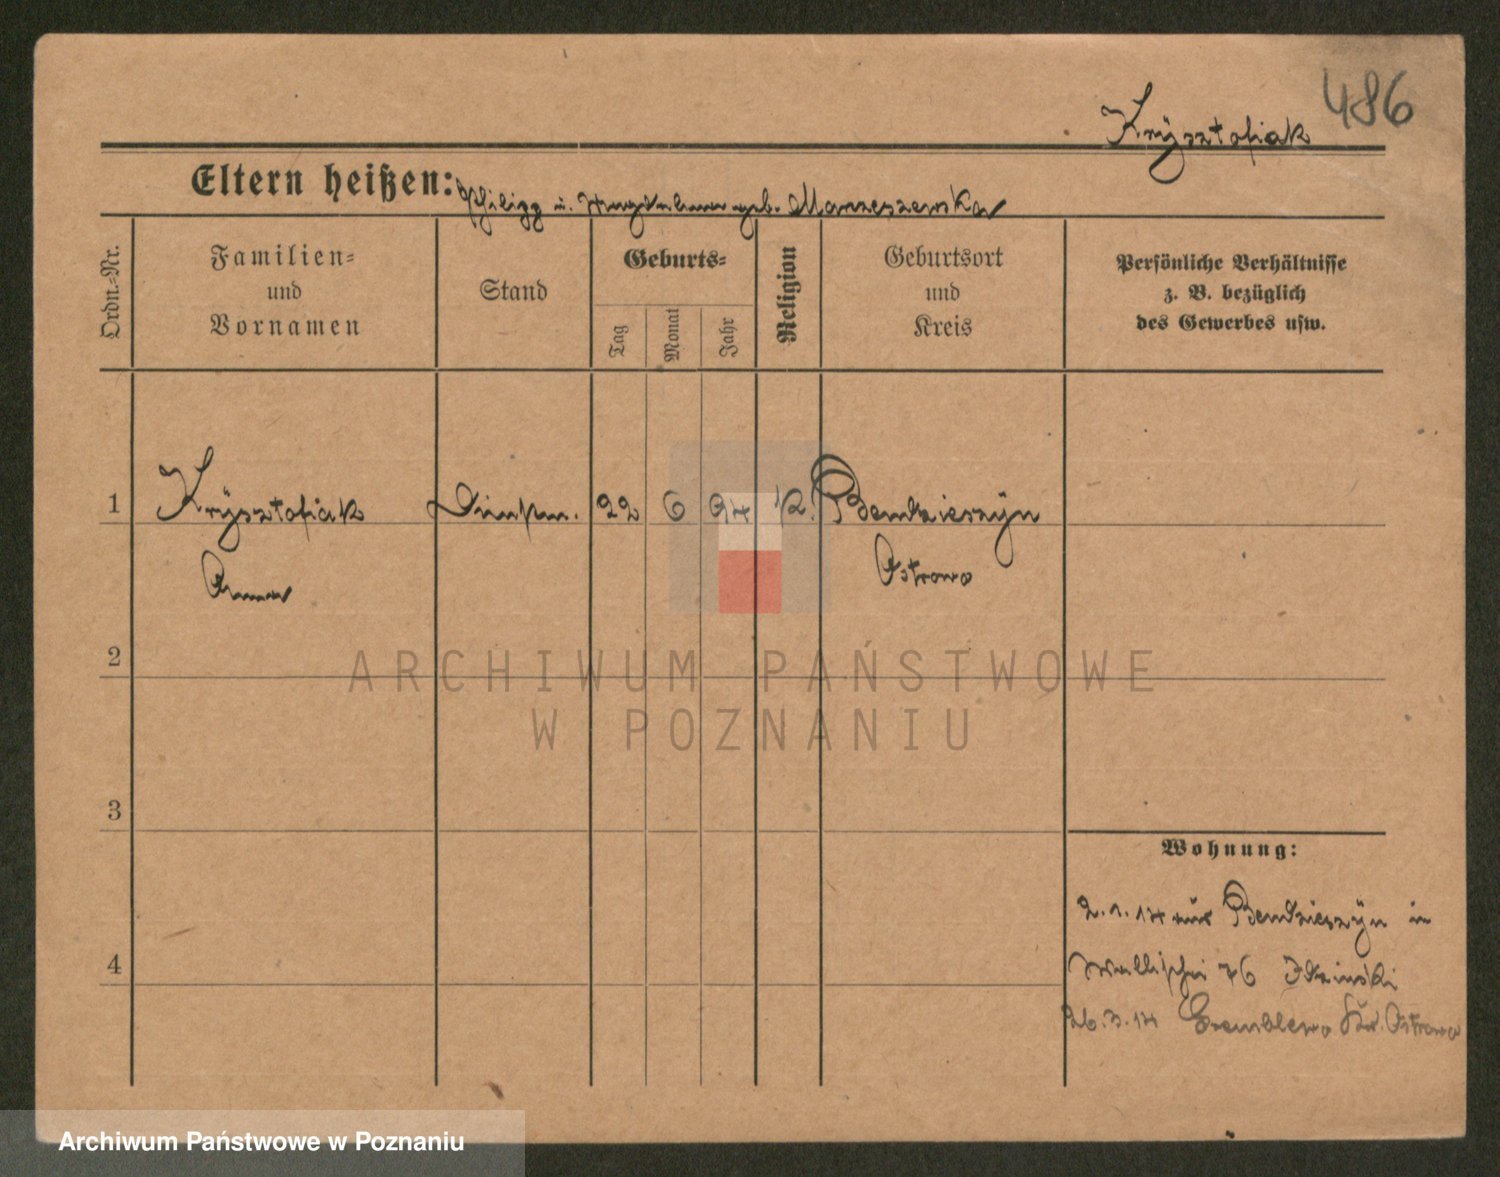 486
Krysztofiak
Eltern heißen: Philipp u. geb. Marzeszewska
Ordn.-Nr.
Familien-
und
Vornamen
Stand
Geburts-
Tag
Monat
Jahr
Religion
Geburtsort
und
Kreis
Persönliche Verhältnisse
z. B. bezüglich
des Gewerbes usw.
1 Krysztofiak Dienstm. 22 6 94 k. Bendzieszyn
Anna Ostrowo
2
3
4
Wohnung:
2.1.14 aus Bendzieszyn in
Wallischei 76
26.3.14 Kr. Ostrowo
ARCHIWUM PAŃSTWOWE
W POZNANIU
Archiwum Państwowe w Poznaniu